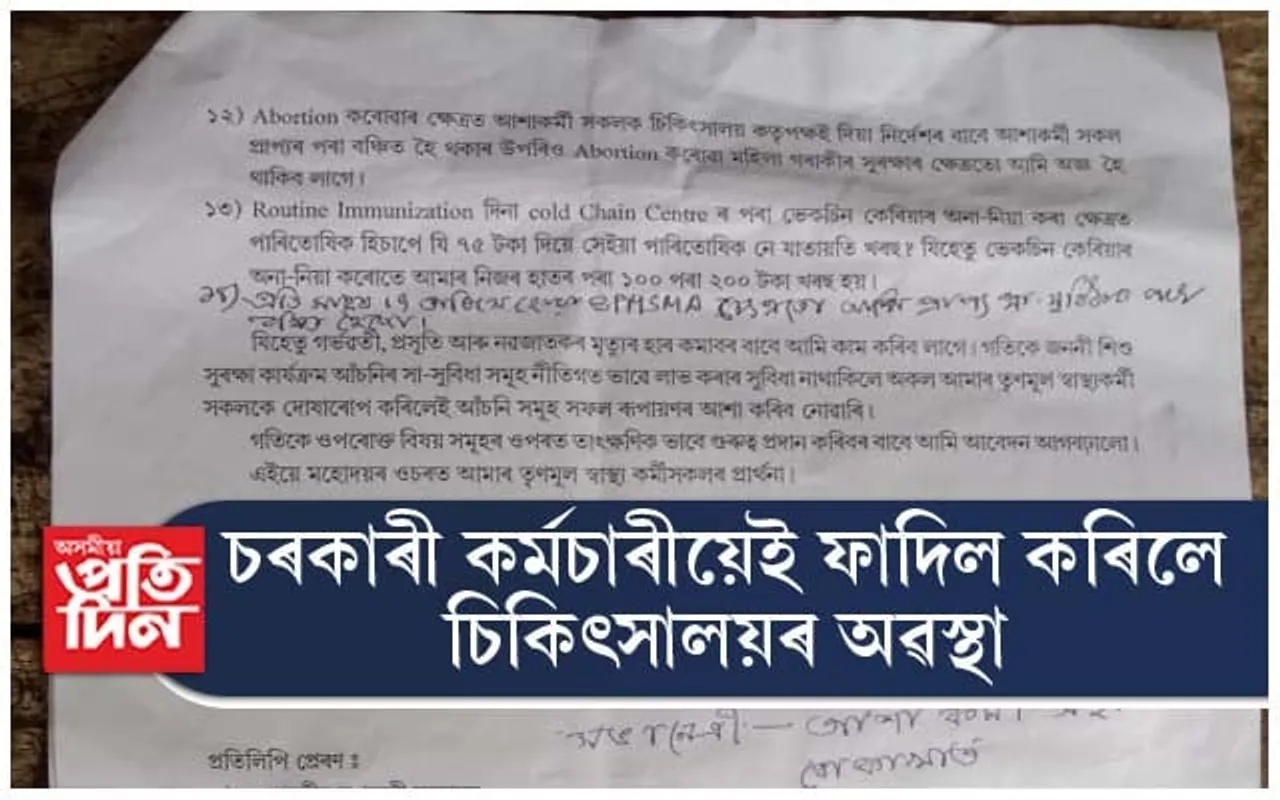 ১২) Abortion কৰোৱাৰ ক্ষেত্ৰত আশাকৰ্মী সকলক চিকিৎসালয় কতৃপক্ষই দিয়া নিৰ্দেশৰ বাবে আশাকৰ্মী সকল
প্ৰাপ্যৰ পৰা বঞ্চিত হৈ থকাৰ উপৰিও Abortion কৰোৱা মহিলা গৰাকীৰ সুৰক্ষাৰ ক্ষেত্ৰতো আমি অজ্ঞ হৈ
থাকিব লাগে।
১৩) Routine Immunization দিনা cold Chain Centre ৰ পৰা ভেকচিন কেৰিয়াৰ অনা-নিয়া কৰা ক্ষেত্ৰত
পাৰিতোষিক হিচাপে যি ৭৫ টকা দিয়ে সেইয়া পাৰিতোষিক নে যাতায়তি খৰছ? যিহেতু ভেকচিন কেৰিয়াৰ
অনা-নিয়া কৰোতে আমাৰ নিজৰ হাতৰ পৰা ১০০ পৰা ২০০ টকা খৰছ হয়।
১৪) প্ৰতি মাহৰ ১৭ তাৰিখে হোৱা PMSMA
যিহেতু গৰ্ভৱতী, প্ৰসূতি আৰু নৱজাতকৰ মৃত্যুৰ হাৰ কমাবৰ বাবে আমি কাম কৰিব লাগে। গতিকে জননী শিশু
সুৰক্ষা কাৰ্যক্ৰম আঁচনিৰ সা-সুবিধা সমূহ নীতিগত ভাৱে লাভ কৰাৰ সুবিধা নাথাকিলে অকল আমাৰ তৃণমূল স্বাস্থ্যকৰ্মী
সকলকে দোষাৰোপ কৰিলেই আঁচনি সমূহ সফল ৰূপায়ণৰ আশা কৰিব নোৱাৰি।
গতিকে ওপৰোক্ত বিষয় সমূহৰ ওপৰত তাৎক্ষণিক ভাৱে গুৰুত্ব প্ৰদান কৰিবৰ বাবে আমি আবেদন আগবঢ়ালো।
এইয়ে মহোদয়ৰ ওচৰত আমাৰ তৃণমূল স্বাস্থ্য কৰ্মীসকলৰ প্ৰাৰ্থনা।
অসমীয়া
প্ৰতি
দিন
চৰকাৰী কৰ্মচাৰীয়েই ফাদিল কৰিলে
চিকিৎসালয়ৰ অৱস্থা
সভানেত্ৰী — আশা
প্ৰতিলিপি প্ৰেৰণ ঃ